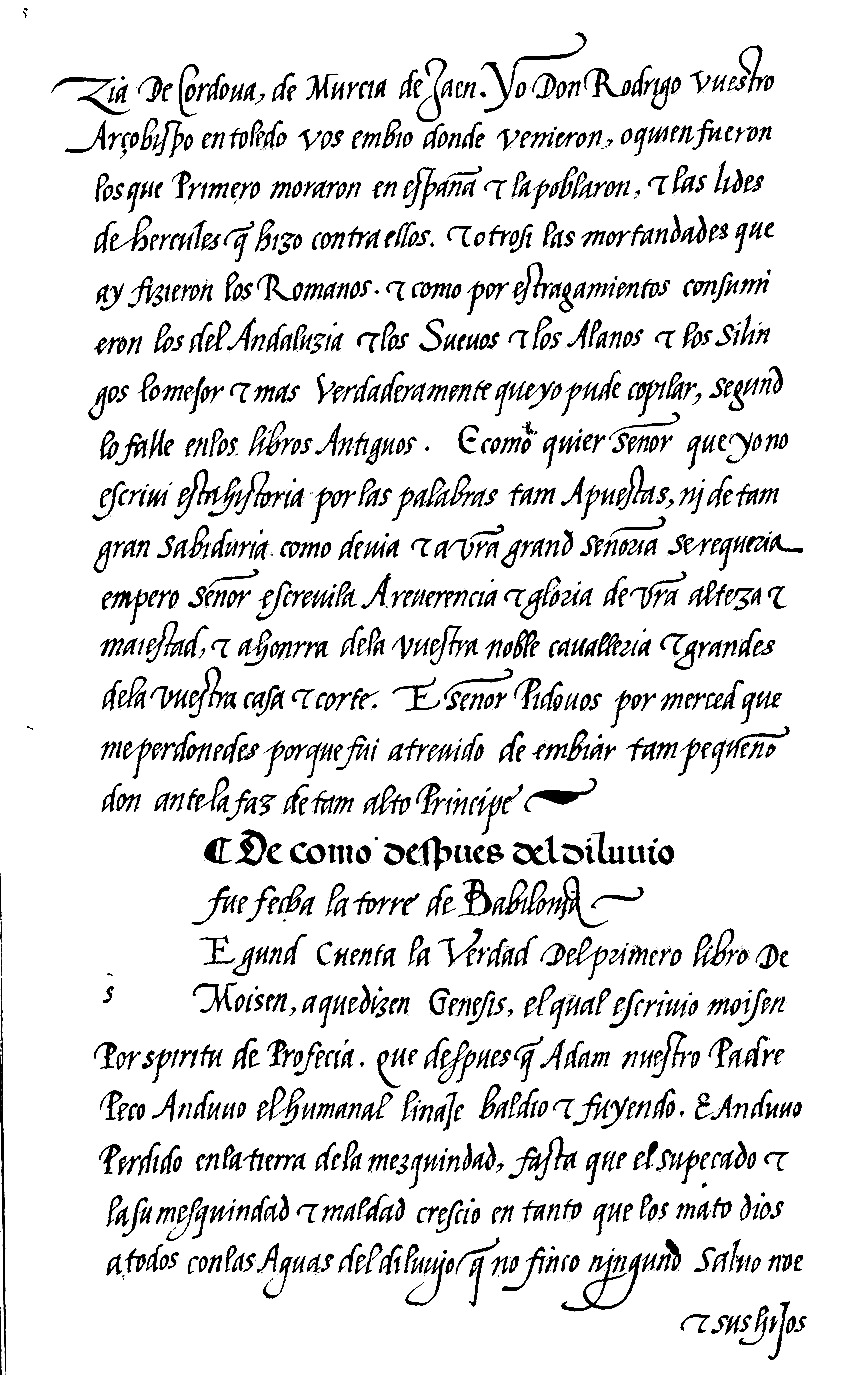 zia De Cordoua, de Murcia de Jaen. Yo Don Rodrigo vuestro
Arçobispo en toledo vos embio donde venieron, o quien fueron
los que Primero moraron en españa τ la poblaron, τ las lides
de hercules q̃ hizo contra ellos. τ otrosi las mortandades que
ay fizieron los Romanos. τ como por estragamientos consumi
eron los del Andaluzia τ los Sueuos τ los Alanos τ los Silin
gos lo mejor τ mas Verdaderamente que yo pude copilar, segund
lo falle en los libros Antiguos. E como quier señor que yo no
escriui esta historia por las palabras tam Apuestas, nj de tam
gran sabiduria como deuia τ a vr̃a grand señoria se requeria
empero señor escreuila A reuerencia τ gloria de vr̃a alteza τ
maiestad, τ a honrra dela vuestra noble caualleria τ grandes
dela vuestra casa τ corte. E señor Pidouos por merced que
me perdonedes porque fui atreuido de embiar tam pequeño
don ante la faz de tam alto Principe
¶ De como despues del diluuio
fue fecha la torre de Babilonia
Egund Cuenta la Verdad Del primero libro De
s Moisen, a que dizen Genesis, el qual escriuio moisen
Por spiritu de Profecia. Que despues q̃ Adam nuestro Padre
Peco Anduuo el humanal linaje baldio τ fuyendo. & Anduuo
Perdido en la tierra de la mezquindad, fasta que el su pecado τ
la su mesquindad τ maldad crescio en tanto que los mato dios
a todos con las Aguas del diluujo q̃ no finco njngund Saluo noe
τ sus hijos